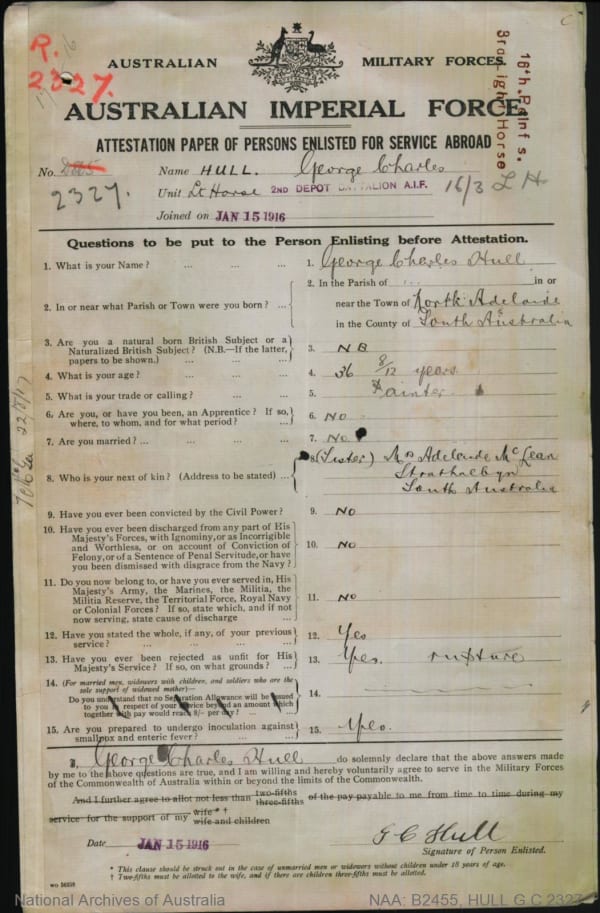 R.
2327.
C
16th. Reinf s.
3rd Light Horse
AUSTRALIAN MILITARY FORCES.
AUSTRALIAN IMPERIAL FORCE
ATTESTATION PAPER OF PERSONS ENLISTED FOR SERVICE ABROAD
No. Name HULL. George Charles
2327. Unit Lt Horse 2ND DEPOT BATTALION A.I.F. 16/3 L H
Joined on JAN 15 1916
Questions to be put to the Person Enlisting before Attestation.
1. What is your Name? ... ... ... 1. George Charles Hull
2. In or near what Parish or Town were you born? ... 2. In the Parish of ... in or
near the Town of North Adelaide
in the County of South Australia
3. Are you a natural born British Subject or a
Naturalized British Subject? (N.B.—If the latter,
papers to be shown.) ... ... ... 3. NB
4. What is your age? ... ... ... 4. 36 8/12 years
5. What is your trade or calling? ... ... 5. Painter
6. Are you, or have you been, an Apprentice? If so,
where, to whom, and for what period? ... 6. NO
7. Are you married? ... ... ... ... 7. NO
8. Who is your next of kin? (Address to be stated) ... 8 (Sister) Mrs Adelaide McLean
Strathalbyn
South Australia
9. Have you ever been convicted by the Civil Power? 9. NO
10. Have you ever been discharged from any part of His
Majesty's Forces, with Ignominy, or as Incorrigible
and Worthless, or on account of Conviction of
Felony, or of a Sentence of Penal Servitude, or have
you been dismissed with disgrace from the Navy? 10. NO
11. Do you now belong to, or have you ever served in, His
Majesty's Army, the Marines, the Militia, the
Militia Reserve, the Territorial Force, Royal Navy
or Colonial Forces? If so, state which, and if not
now serving, state cause of discharge ... 11. NO
12. Have you stated the whole, if any, of your previous
service? ... ... ... ... 12. Yes
13. Have you ever been rejected as unfit for His
Majesty's Service? If so, on what grounds? ... 13. Yes. rupture
14. (For married men, widowers with children, and soldiers who are the
sole support of widowed mother)—
Do you understand that no Separation Allowance will be issued
to you in respect of your service beyond an amount which
together with pay would reach 8/- per day? ... ... 14.
15. Are you prepared to undergo inoculation against
smallpox and enteric fever? ... ... 15. Yes.
I, George Charles Hull do solemnly declare that the above answers made
by me to the above questions are true, and I am willing and hereby voluntarily agree to serve in the Military Forces
of the Commonwealth of Australia within or beyond the limits of the Commonwealth.
And I further agree to allot not less than two-fifths three-fifths of the pay payable to me from time to time during my
service for the support of my wife * † wife and children
Date JAN 15 1916 G C Hull
Signature of Person Enlisted.
* This clause should be struck out in the case of unmarried men or widowers without children under 18 years of age.
† Two-fifths must be allotted to the wife, and if there are children three-fifths must be allotted.
National Archives of Australia NAA: B2455, HULL G C 2327